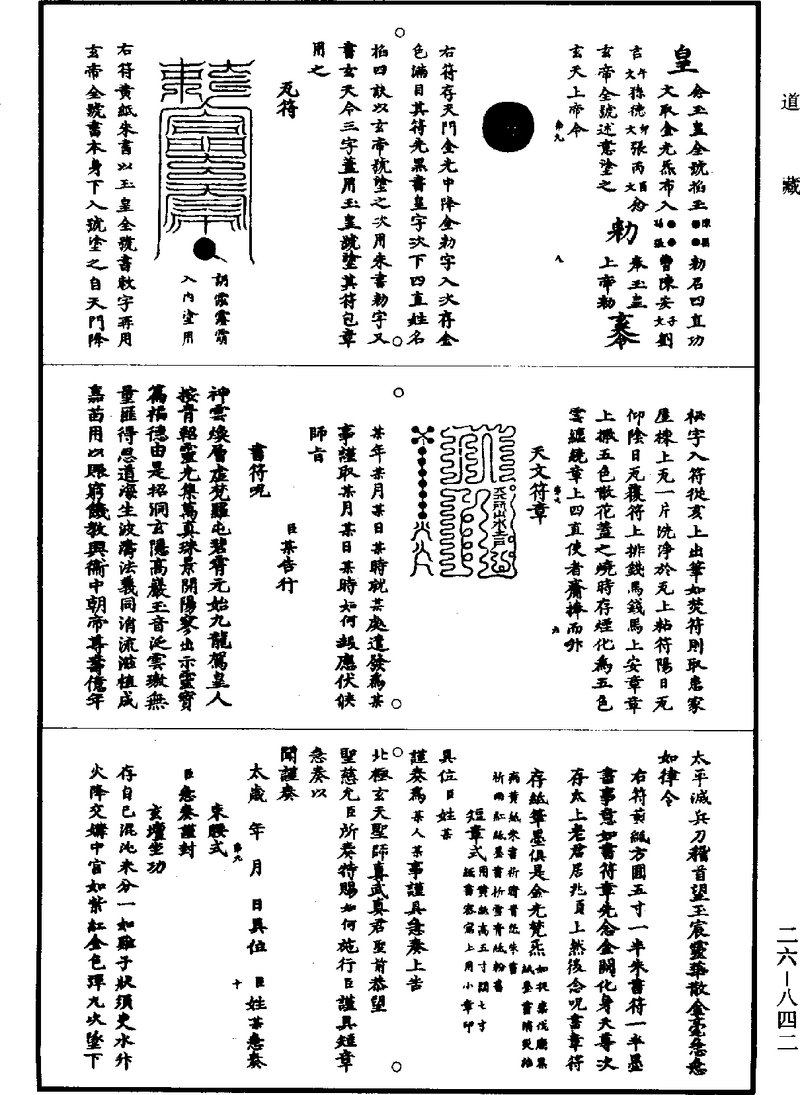 道藏
皇
念玉皇全號掐玉
勅名四直功
文取金光炁布入
曹陳安子文劉
吉文午孫德文卯張丙文酉
奉玉皇
玄帝全號述意塗之
勅
上帝勅
玄天上帝令
右符存天門金光中降金勅字入次存金
色滿目其符先黑書皇字次下四直姓名
掐四訣以玄帝號塗之次用朱書勅字又
書玄天令三字蓋用玉皇號塗其符包章
用之
瓦符
入內塗用
右符黃紙朱書以玉皇全號書敕字再用
玄帝全號書本身下入號塗之自天門降
秘字入符從亥上出筆如焚符則取患家
屋棟上瓦一片洗淨於瓦上粘符陽日瓦
仰陰日瓦覆符上排錢馬錢馬上安章章
上撒五色散花蓋之燒時存煙化為五色
雲纏繞章上四直使者齎捧而升
天文符章
某年某月某日某時就某處遣發為某
事謹取某月某日某時如何報應伏候
師旨
臣某告行
書符呪
神雲煥層虛梵羅屯碧霄元始九龍駕皇人
按青軺靈光集萬真珠景開陽寥出示靈寶
篇福德由是招洞玄隱高巖玉音泛雲璈無
量匪得思道海生波濤法義同消流滋植成
嘉苗用以賑窮饑教興衛中朝帝尊壽億年
太平滅兵刀稽首望玉宸靈華散金毫急急
如律令
右符黃紙方圓五寸一半朱書符一半墨
書事意如書符章先念金闕化身天尊次
存太上老君居兆頂上然後念呪書章符
存紙筆墨俱是金光梵炁
短章式用黃紙高五寸闊七寸
具位臣姓某
謹奏為某人某事謹具急奏上告
北極玄天聖師真武真君聖前恭望
聖慈允臣所奏特賜如何施行臣謹具短章
急奏以
聞謹奏
太歲年月日具位臣姓某急奏
束腰式
臣急奏謹封
玄壇坐功
存自己混沌未分一如雞子狀須臾水升
火降交媾中宮如紫紅金色彈丸次墜下
二六—八四二